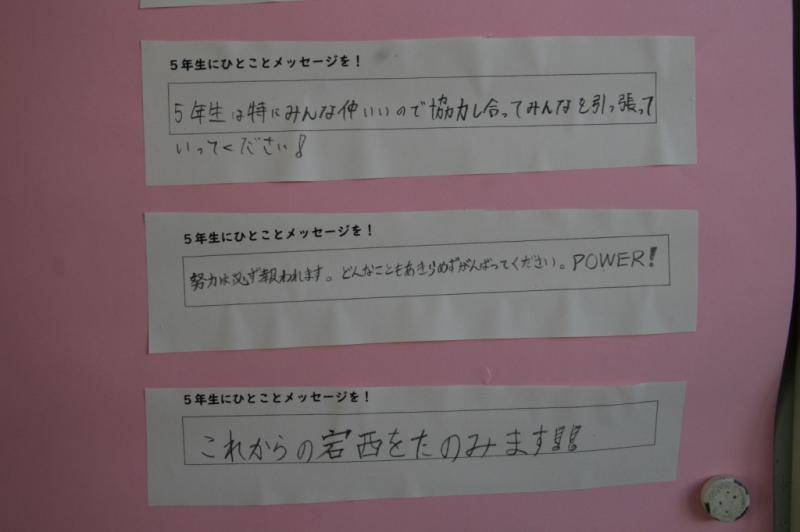 5年生にひとことメッセージを!
5年生は特にみんな仲いいので協力し合ってみんなを引っ張って
いってください!
5年生にひとことメッセージを!
努力は必ず報われます。どんなこともあきらめずがんばってください。POWER!
5年生にひとことメッセージを!
これからの宕西をたのみます!!